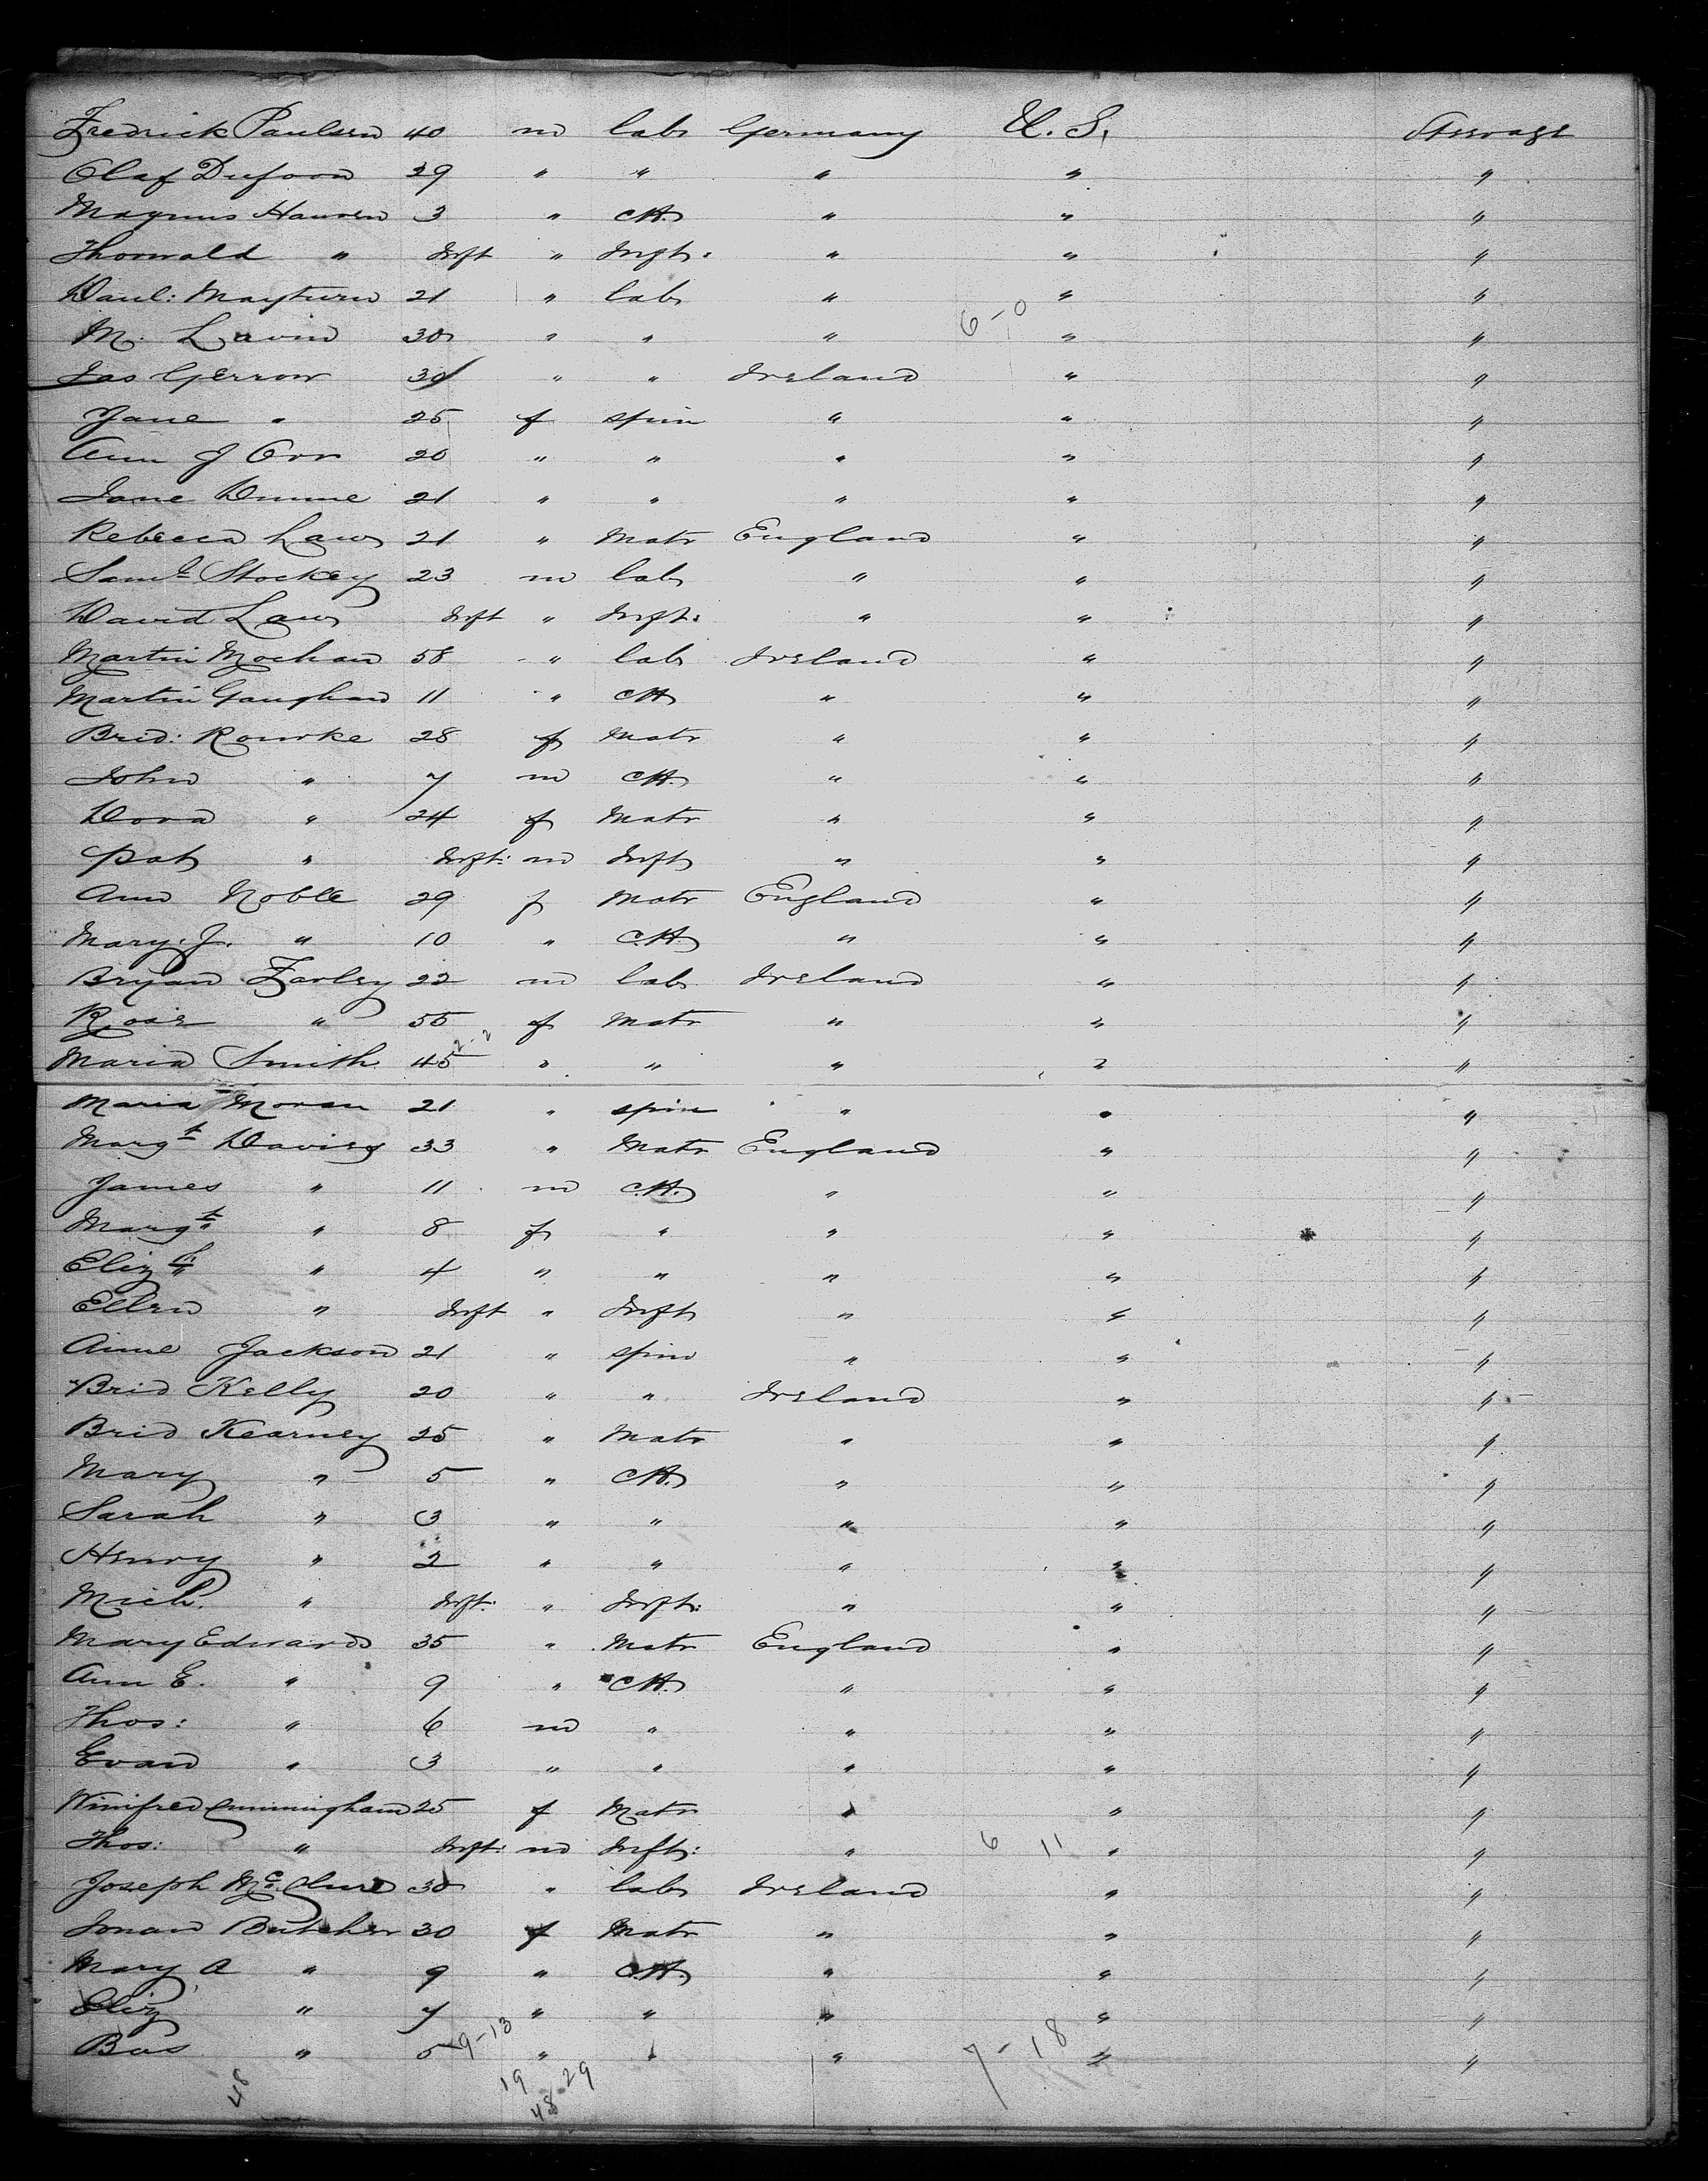 Fredrick Paulsen 40 m lab Germany U. S. Steerage
Olaf 29 " " " " "
Magnus Hansen 3 " Ch. " " "
Thorwald " Inft " Inft: " " "
Danl: 21 " lab " " "
M. Lavin 30 " " " 6-0 " "
Jas Gerrow 30 " " Ireland " "
Jane " 25 f spin " " "
Ann J Orr 20 " " " " "
Jane Dunne 21 " " " " "
Rebecca Law 21 " Matr England " "
Saml Stockey 23 m lab " " "
David Law Inft " Inft: " " "
Martin Mochan 58 " lab Ireland " "
Martin Gaughan 11 " Ch " " "
Brid: Rourke 28 f Matr " " "
John " 7 m Ch. " " "
Dora " 24 f Matr " " "
Pat " Inft: m Inft " " "
Ann Noble 29 f Matr England " "
Mary. J. " 10 " Ch. " " "
Bryan Farley 22 m lab Ireland " "
Rose " 55 f Matr " " "
Maria Smith 45 2-2 " " " " "
Maria Moran 21 " spin " " "
Margt Davies 33 " Matr England " "
James " 11 m Ch. " " "
Margt " 8 f " " " "
Elizh " 4 " " " " "
Ellen " Inft " Inft " " "
Anne Jackson 21 " spin " " "
Brid Kelly 20 " " Ireland " "
Brid Kearney 25 " Matr " " "
Mary " 5 " Ch. " " "
Sarah " 3 " " " " "
Henry " 2 " " " " "
Mich. " Inft: " Inft: " " "
Mary Edwards 35 " Matr England " "
Ann E. " 9 " Ch. " " "
Thos: " 6 m " " " "
Evan " 3 " " " " "
Winifred Cunningham 25 f Matr " " "
Thos: " Inft: m Inft: " 6 11 " "
Joseph McClure 30 " lab Ireland " "
Butcher 30 f Matr " " "
Mary A " 9 " Ch. " " "
Eliz " 7 " " " " "
" 5 9-13 " " " 7-18 " "
48 19 29
48